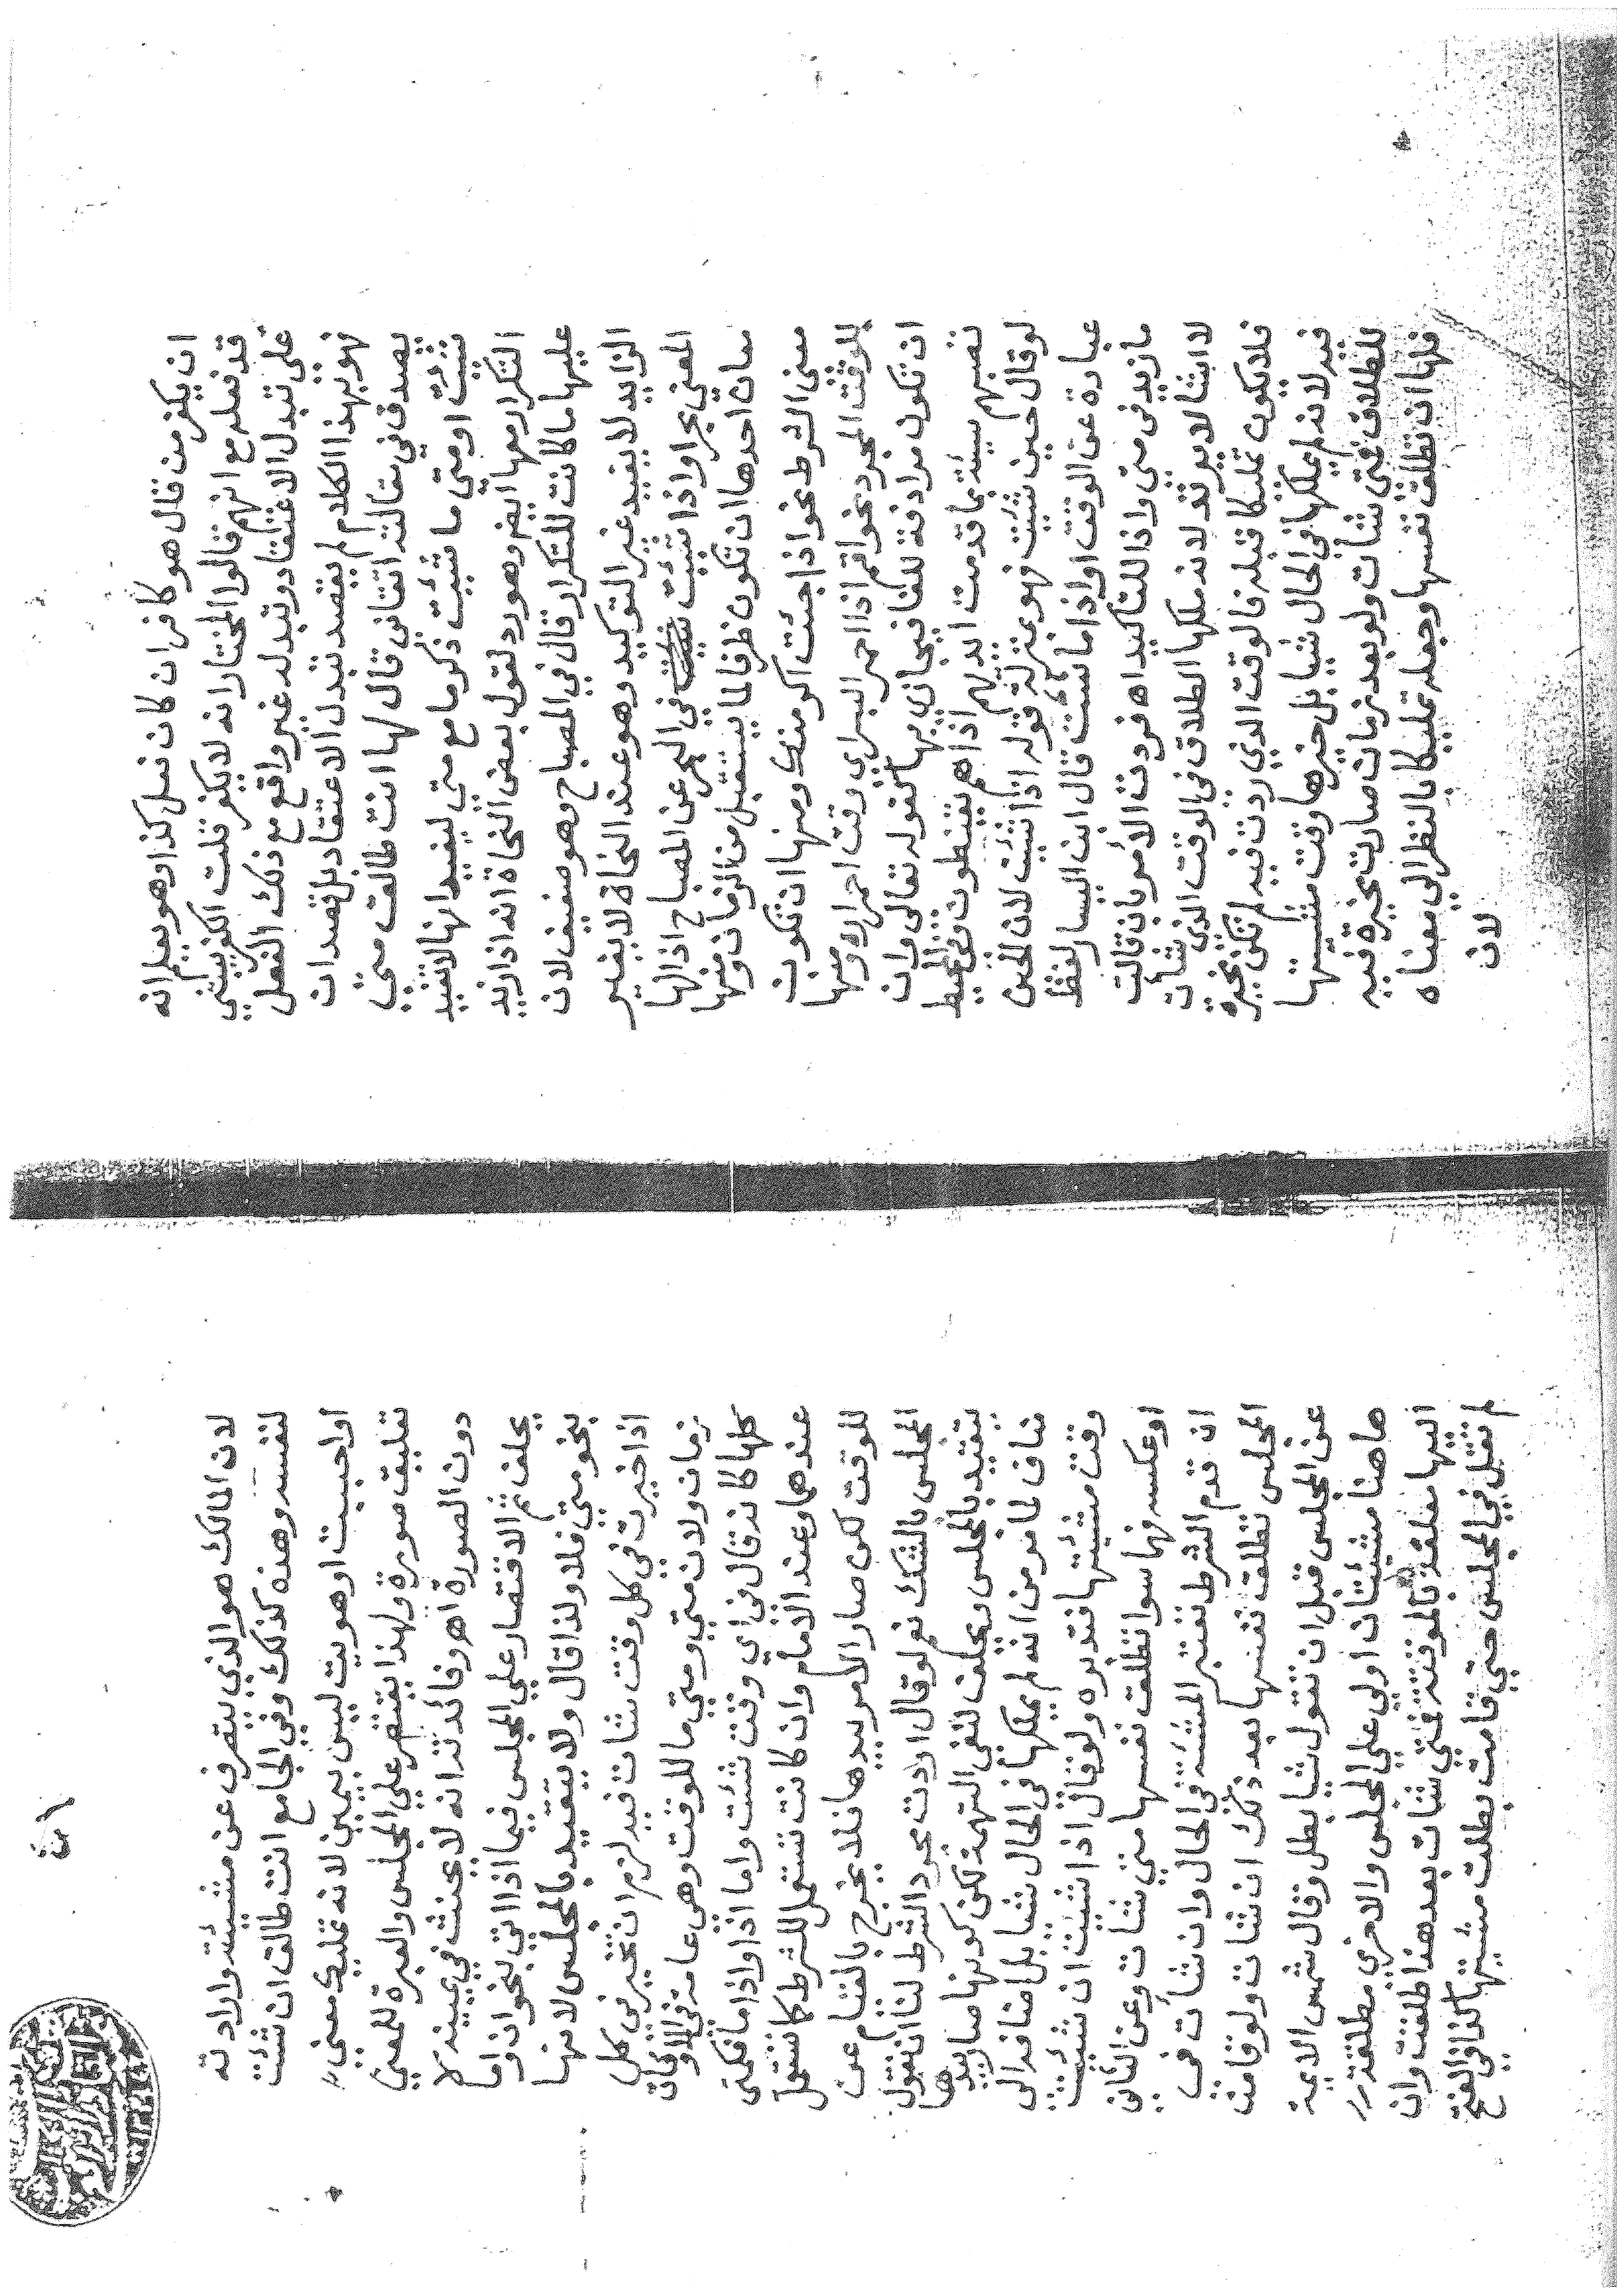 ان يكفر من قال هو كافر ان كان فعل كذا وهو يعلم انه
قد فعله مع انهم قالوا المختار انه لا يكفر قلت الكفر يبتني
على تبدل الاعتقاد وتبدله غير واقع مع ذلك الفعل
فهو بهذا الكلام لم يقصد تبدل الاعتقاد بل قصد ان
يصدق في مقالته اتقاني قال لها انت طالق متي
شئت او متي ما شئت ذكر ما مع متي ليفيد انها لا تفيد
التكرار معها ايض وهو رد لقول بعض النحاة انه اذا زيد
عليها ما كانت للتكرار قال في المصباح وهو ضعيف لان
الزايد لا يفيد غير التوكيد وهو عند النحاة لا يغير
المعني بحر او اذا شئت في البحر عن المصباح اذا لها
معان احدها ان تكون ظرفا لما يستقبل من الزمان وفيها
معنى الشرط نحو اذا جئت اكرمتك ومنها ان تكون
للوقت المجرد نحو اقم اذا احمر البسر اي وقت احمراره ومنها
ان تكون مرادفة للفا فيجازي بها كقوله تعالى وان
تصبهم سيئة بما قدمت ايديهم اذا هم يقنطون وفي المحيط
لو قال حين شئت فهو بمنزلة قوله اذا شئت لان الحين
عبارة عن الوقت او اذا ما شئت قال ابن لفظ
ما زيد في متى واذا للتاكيد اه فردت الامر بان قالت
لا اشا لا يرتد لانه ملكها الطلاق في الوقت الذي شأت
فلا يكون تمليكا قبله فالوقت الذي ردت فيه لم تكن مخيرة
فيه لانه لم يملكها في الحال شيا بل خيرها وقت مشيتها
للطلاق فمتي شأت ولو بعد زمان صارت مخيرة فيه
فلها ان تطلق نفسها وجعله تمليكا بالنظر الي معناه
لان
لان المالك هو الذي يتصرف عن مشيئته وارادته
لنفسه وهذه كذلك وفي الجامع انت طالق ان شئت
او احببت او هويت ليس بيمين لانه تمليك معني
تعليق صورة ولهذا يقتصر علي المجلس والعبرة للمعني
دون الصورة اه وفائدته انه لا يحنث في يمينه لا
يحلف ثم الاقتصار علي المجلس فيما اذا اتي بنحو ان واما
بنحو متي فلا ولذا قال ولا يتقيد بالمجلس لانها
اذا خيرت في كل وقت شات فيه لزم ان تخير في كل
زمان ولان متي ومتي ما للوقت وهي عامة في الاوقات
كلها كانه قال في اي وقت شئت واما اذا واذا ما فكمتى
عندهما وعند الامام وان كانت تستعمل للشرط كما تستعمل
للوقت لكن صار الامر بيدها فلا يخرج بالقيام عن
المجلس بالشك نعم لو قال اردت مجرد الشرط لنا ان نقول
يتقيد بالمجلس ويحلف لنفي التهمة لكن كونها صار بيدها
مناف لما مر من انه لم يملكها في الحال شيا بل مضافا الى
وقت مشيئتها فتدبره ولو قال اذا شئت ان شئت
او عكسه فهما سوا تطلق نفسها متي شات وعن الثاني
ان قدم الشرط تعتبر المشئة في الحال وان شأت في
المجلس تطلق نفسها بعد ذلك ان شات ولو قامت
عن المجلس قبل ان تقول شيا بطل وقال شمس الايمة
هاهنا مشيئتان اولي علي المجلس والاخري مطلقة
اليها معلقة بالموقتة فمتي شات بعد هذا طلقت وان
لم تقل في المجلس حتي قامت بطلت مشيتها كذا في الفتح